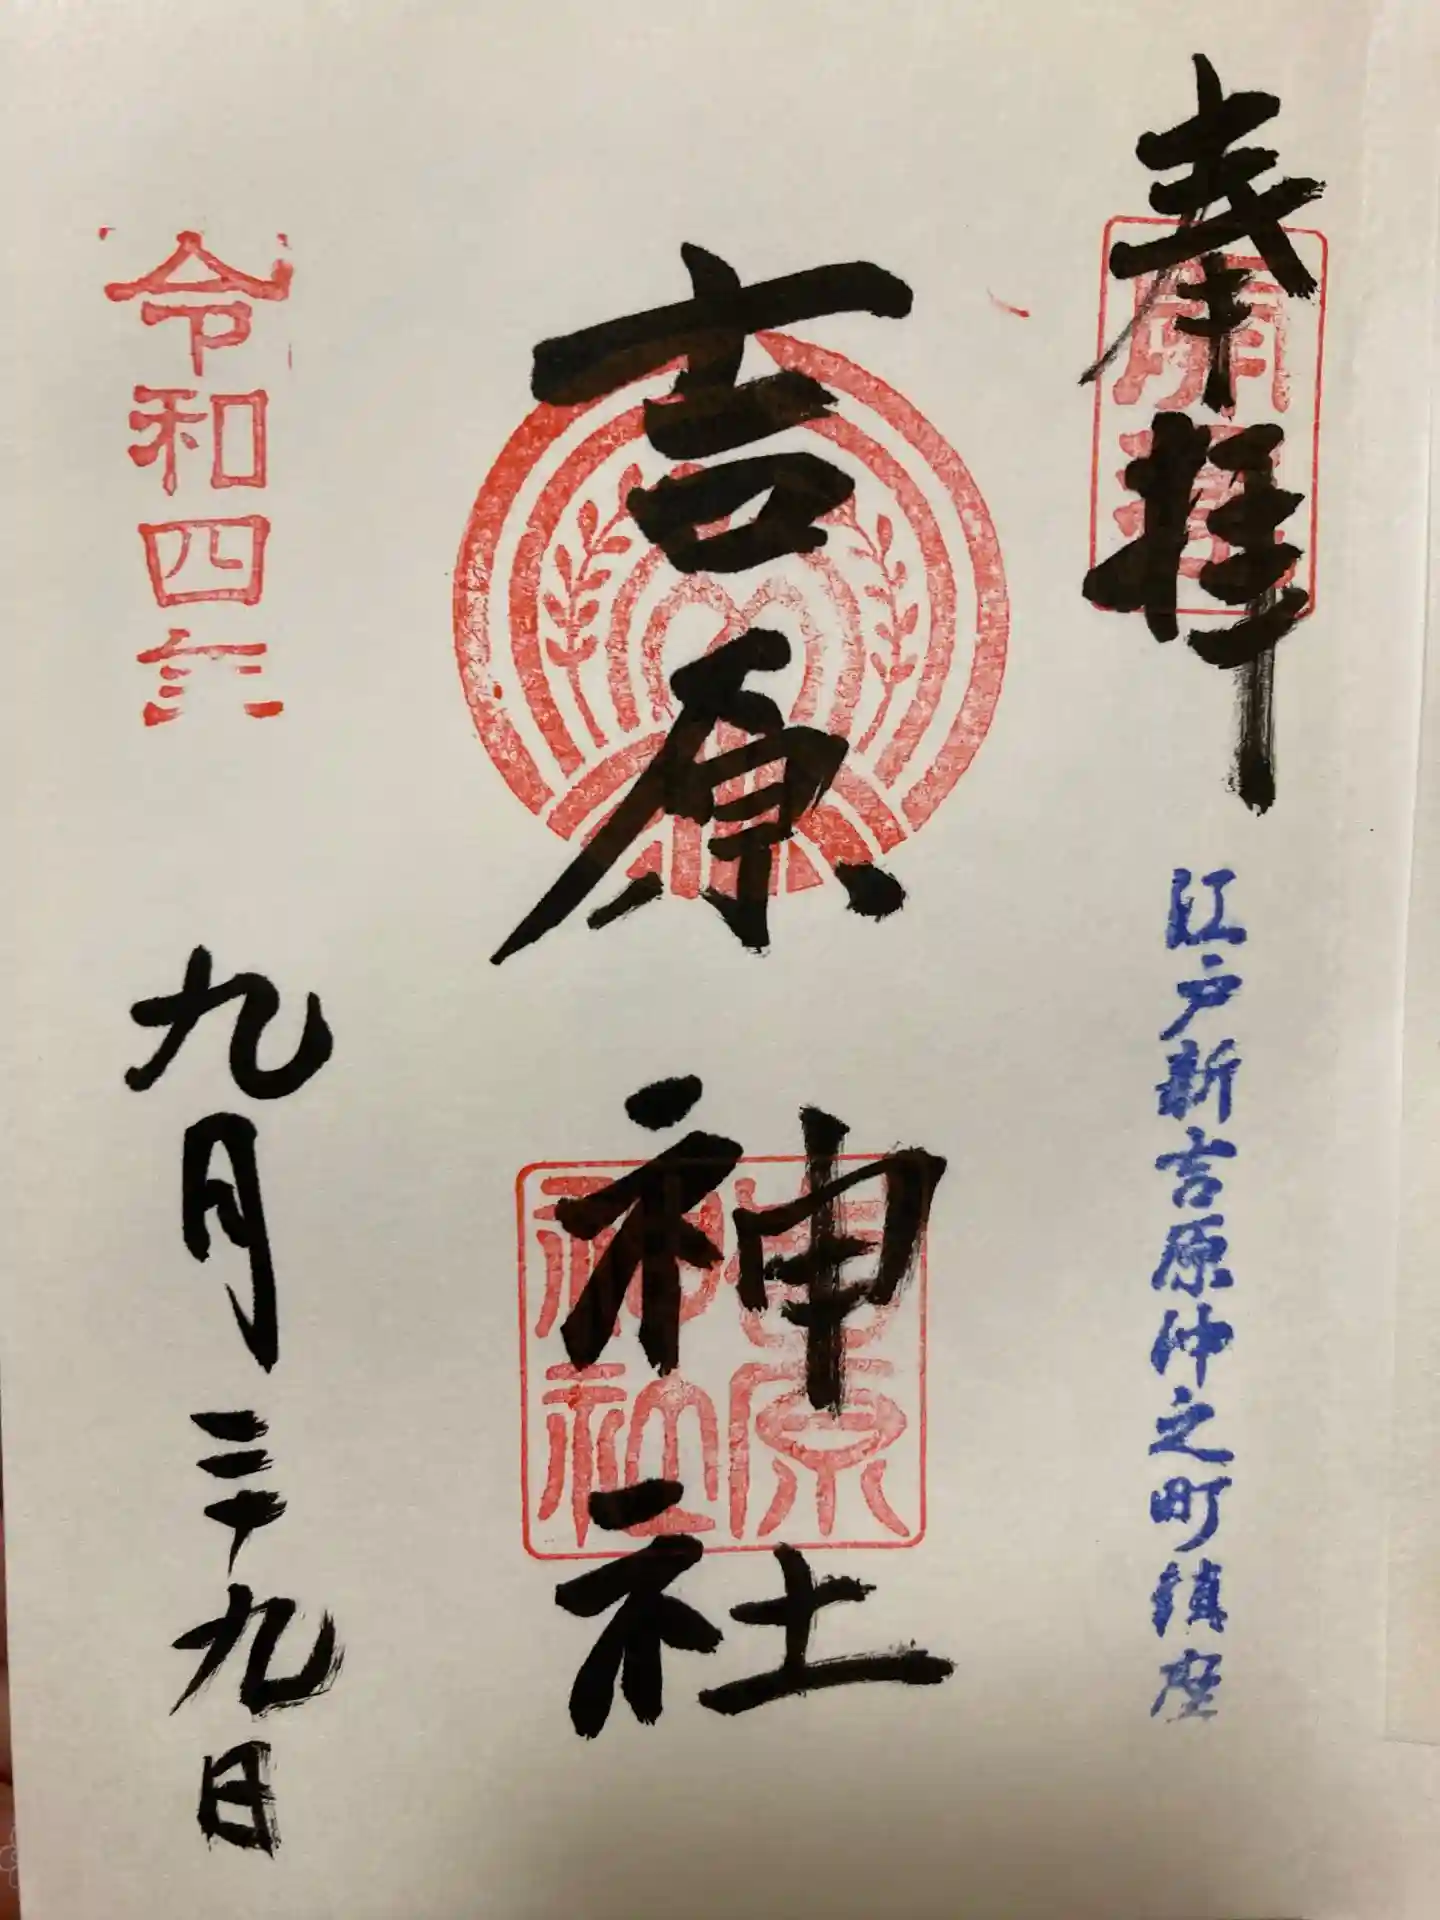 奉拝
江戸新吉原仲之町鎮座
吉原神社
吉原神社
令和四年
九月二十九日